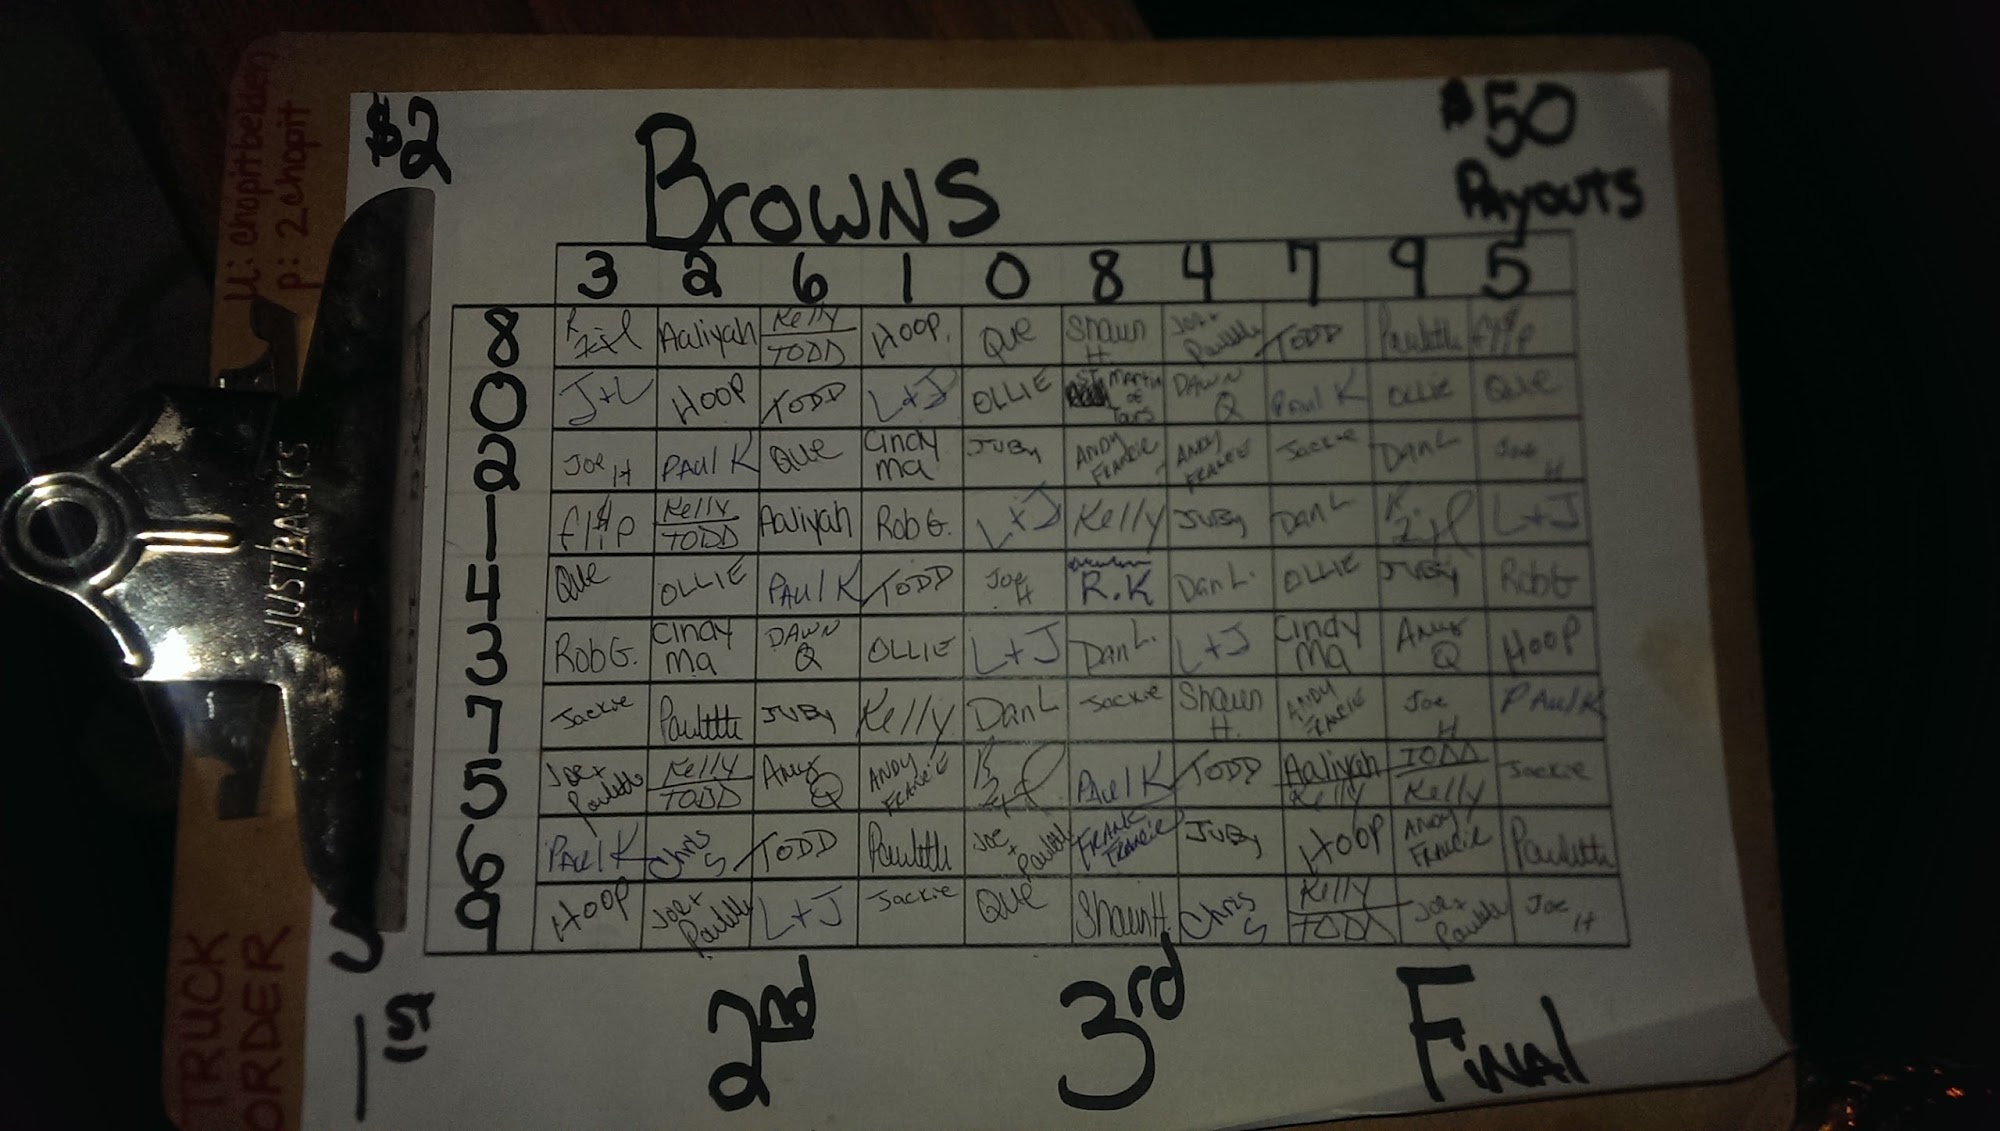 u: chopitbelden
p: 2chopit
$2
$50
Payouts
Browns
3 2 6 1 0 8 4 7 9 5
8 Aaliyah Kelly/TODD HOOP. Que Shawn H. Joe + Paulette TODD Paulette flip
0 J+L HOOP TODD L+J OLLIE St Martin of Tours DAWN Q Paul K OLLIE Que
2 Joe H PAUL K QUE Cindy Ma JUBY ANDY FRANCIE ANDY FRANCIE Jackie Dan L Joe H
1 flip Kelly/TODD Aaliyah Rob G. L+J Kelly JUBY Dan L K. L+J
4 Que OLLIE PAUL K TODD Joe H R.K Dan L. OLLIE JUBY Rob G
3 Rob G. Cindy Ma DAWN Q OLLIE L+J Dan L. L+J Cindy Ma Q HOOP
7 Jackie Paulette JUBY Kelly Dan L Jackie Shawn H. ANDY FRANCIE Joe H PAUL K
5 Joe + Paulette Kelly/TODD Q ANDY FRANCIE PAUL K TODD Aaliyah Kelly TODD/Kelly Jackie
6 PAUL K Chris S TODD Paulette Joe + Paulette FRANK FRANCIE JUBY HOOP ANDY FRANCIE Paulette
9 HOOP Joe + Paulette L+J Jackie Que Shawn H. Chris S Kelly/TODD Joe + Paulette Joe H
JUSTBASICS
TRUCK
ORDER
1st
2nd
3rd
Final